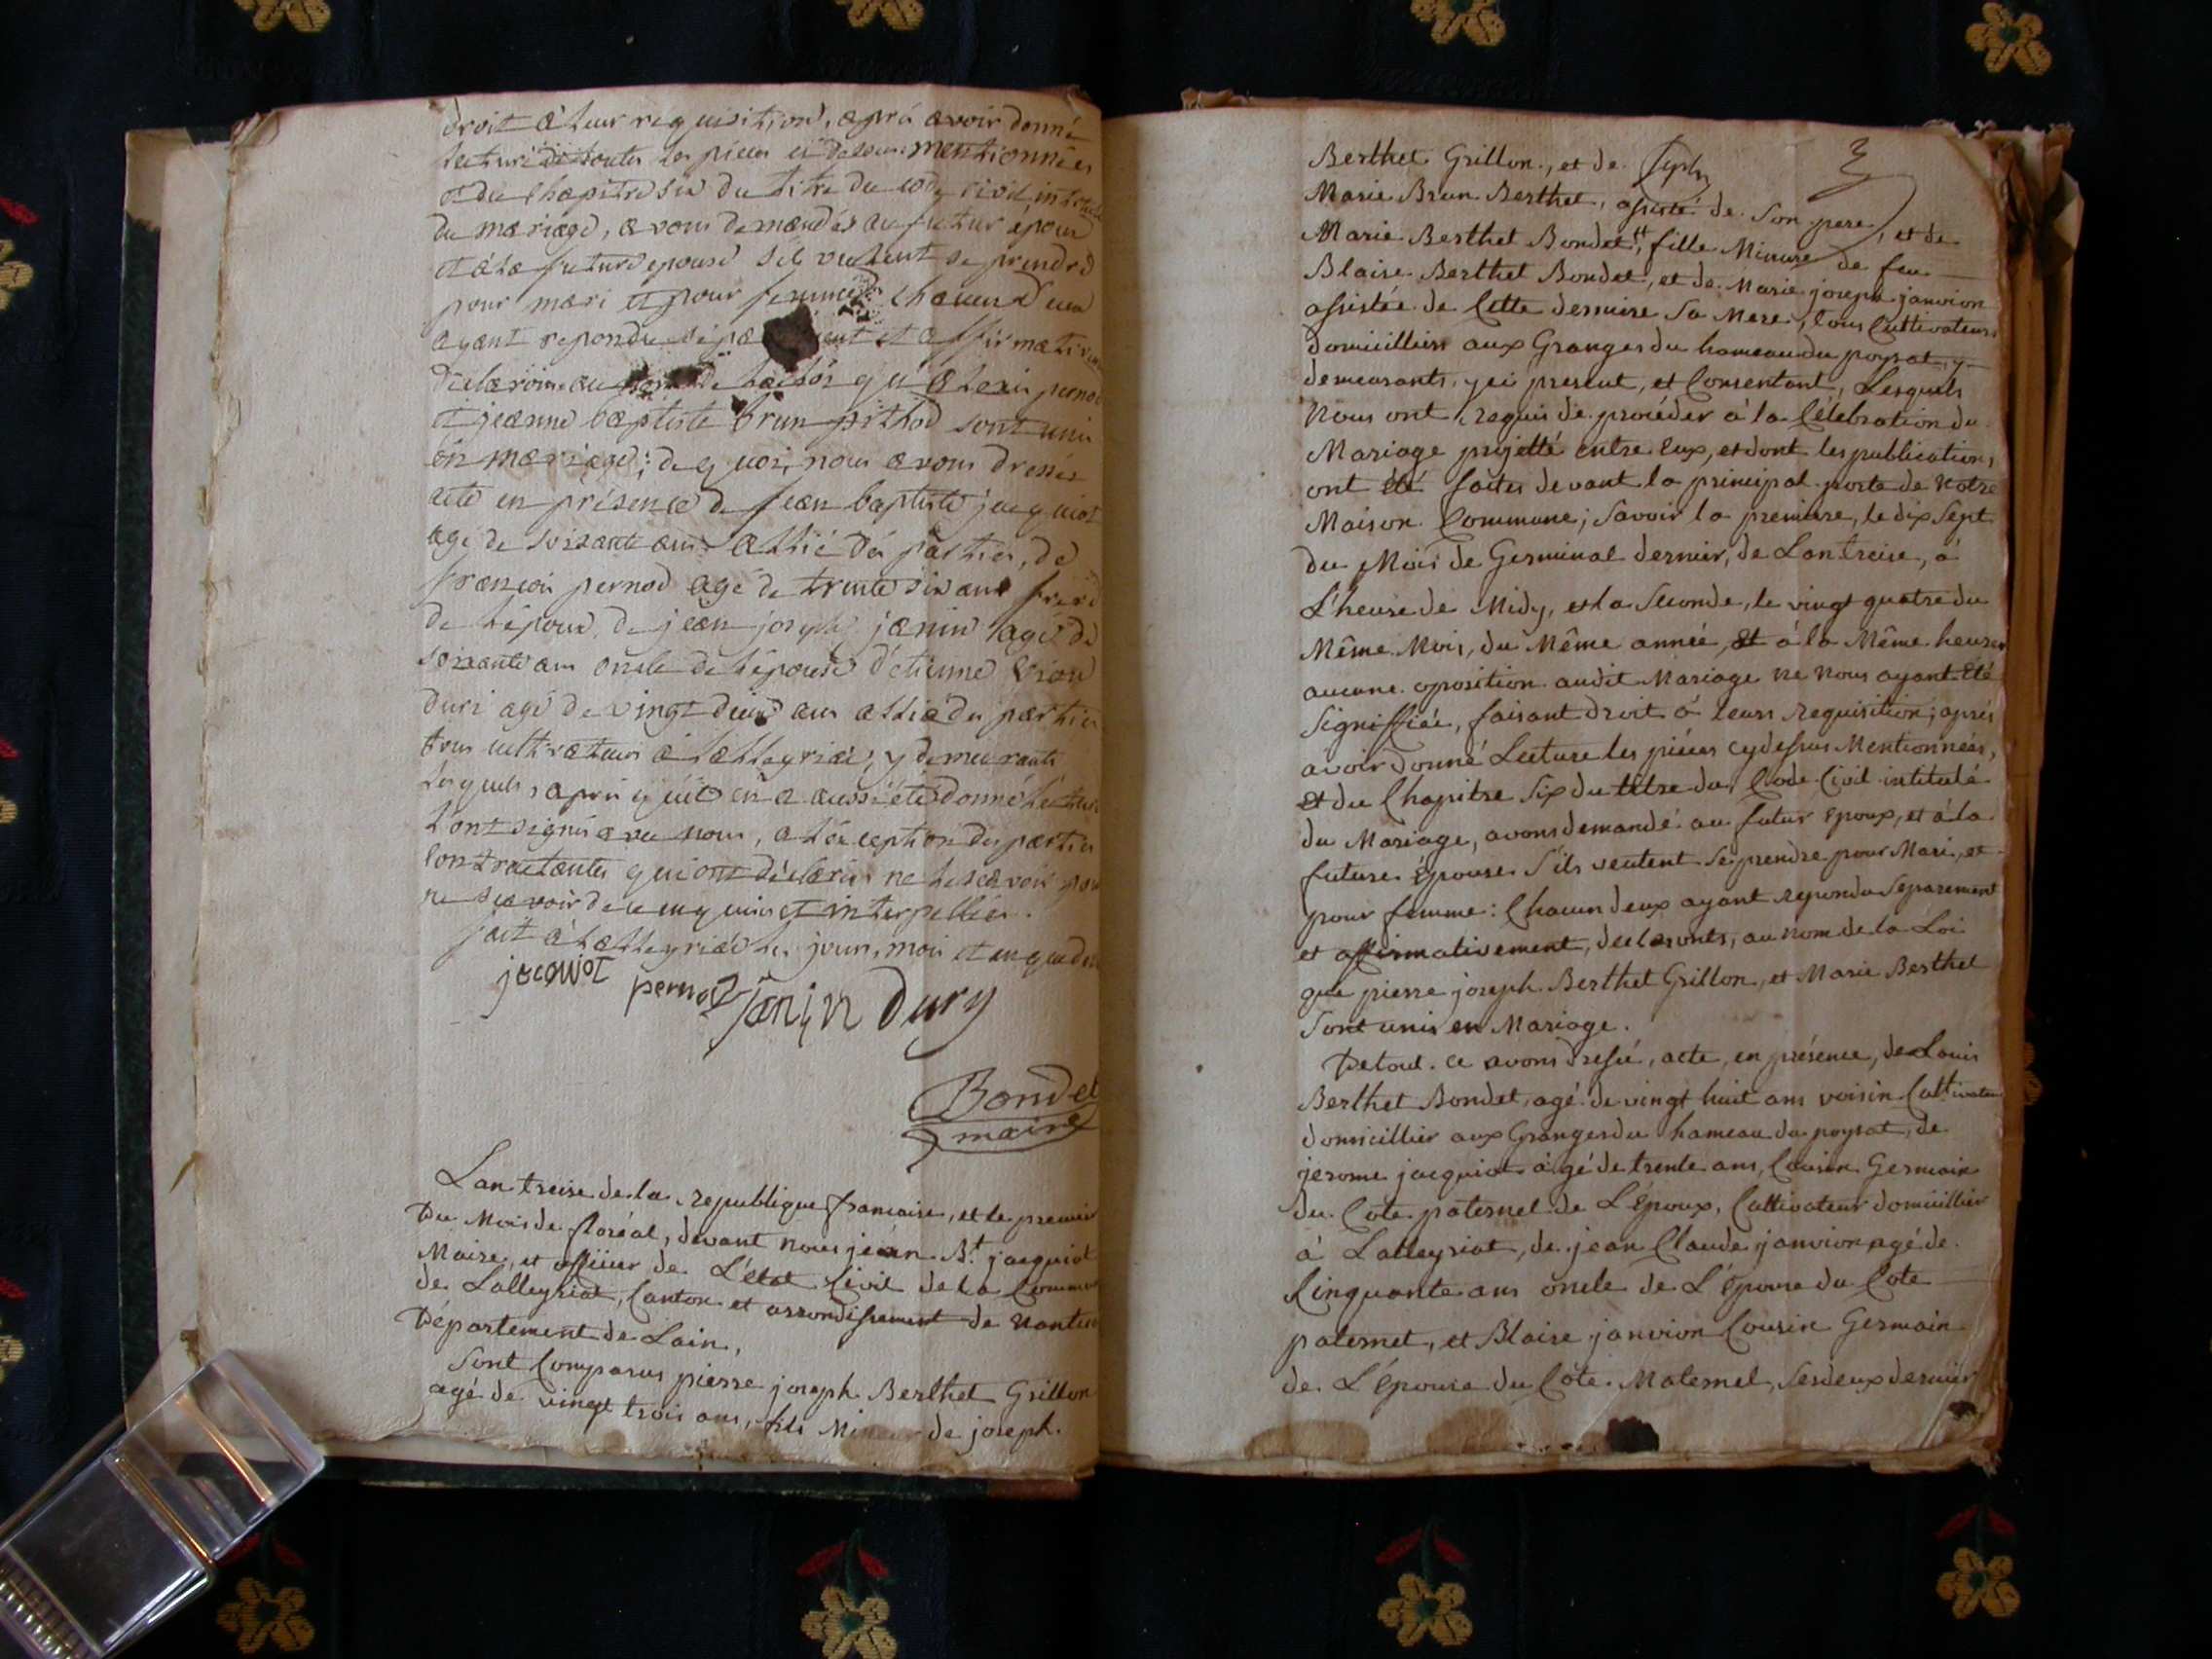 droit à leur réquisition, apris avoir donné
lecture de toutes les pieces ci dessus mentionnées
et du chapitre six du titre du code civil, intitulé
du mariage, avons demandés au futur époux
et à la future epouse s'ils veulent se prendre
pour mari et pour femme chacun d'eux
ayant repondu et affirmativem
déclarons au de la loi qu'alexis pernod
et jeanne baptiste brun pithod sont unis
en mariage; de quoi, nous avons dressés
acte en présence de jean baptiste jacquiot
agé de soixante ans allié des parties, de
françois pernod agé de trente six ans frere
de l'époux, de jean joseph janin agé de
soixante ans oncle de l'épouse d'étienne
duri agé de vingt deux ans allié des parties
tous cultivateurs à lalleyriat, y demeurants
lesquels, apris qu'il en a aussi été donné lecture
l'ont signés avec nous, a l'éxception des parties
contractantes qui ont déclarés ne le scavoir pour
ne scavoir de ce enquis et interpellés.
fait à lalleyriat les jour, mois et an que de
jacquiot pernod janin dury
Bondet
maire
Lan treise de la republique francaise, et le premier
Du Mois de floréal, devant nous jean Bt. jacquiot
Maire, et officier de L'état Civil de la Commune
de Lalleyriat, Canton et arrondissement de Nantua
Département de Lain,
Sont Comparus pierre joseph Berthet Grillon
agé de vingt trois ans, fils Mineur de joseph
3
Berthet Grillon, et de
Marie Brun Berthet, assisté de Son pere, et de
Marie Berthet Bondet, fille Mineure de feu
Blaise Berthet Bondet, et de Marie joseph janvion
assistée de Cette derniere Sa Mere, tous Cultivateurs
domicilliers aux Granges du hameau du poysat, y
demeurants, yci present, et Consentant, Lesquels
Nous ont requis de procéder à la Célebration du
Mariage projetté entre Eux, et dont les publications
ont été faites devant la principal porte de Notre
Maison Commune; Savoir la premiere, le dix Sept
du Mois de Germinal dernier, de Lan treise, à
L'heure de Midy, et la Seconde, le vingt quatre du
Même Mois, du Même année, Et à la Même heure
aucune oposition audit Mariage ne Nous ayant Eté
Signiffiée, faisant droit à leurs Requisition; aprés
avoir donné Lecture les piéces cydessus Mentionnées,
Et du Chapitre Six du titre du Code Civil intitulé
du Mariage, avons demandé au futur Epoux, et à la
future Epouse S'ils veutent Se prendre pour Mari, et
pour femme: Chacun deux ayant repondu Separement
et affirmativement, declaronts, au nom de la Loi
que pierre joseph Berthet Grillon, et Marie Berthet
Sont unis en Mariage.
De tout ce avons dressé, acte, en présence, de Louis
Berthet Bondet, agé de vingt huit ans voisin Cultivateur
domicillier aux Granges du hameau du poysat, de
jerome jacquiot âgé de trente ans, Cousin Germain
du Cote paternel de L'époux, Cultivateur domicillier
à Lalleyriat, de jean Claude janvion agé de
Cinquante ans oncle de L'épouse du Cote
paternel, et Blaise janvion Cousin Germain
de L'épouse du Côte Maternel, Ses deux dernier